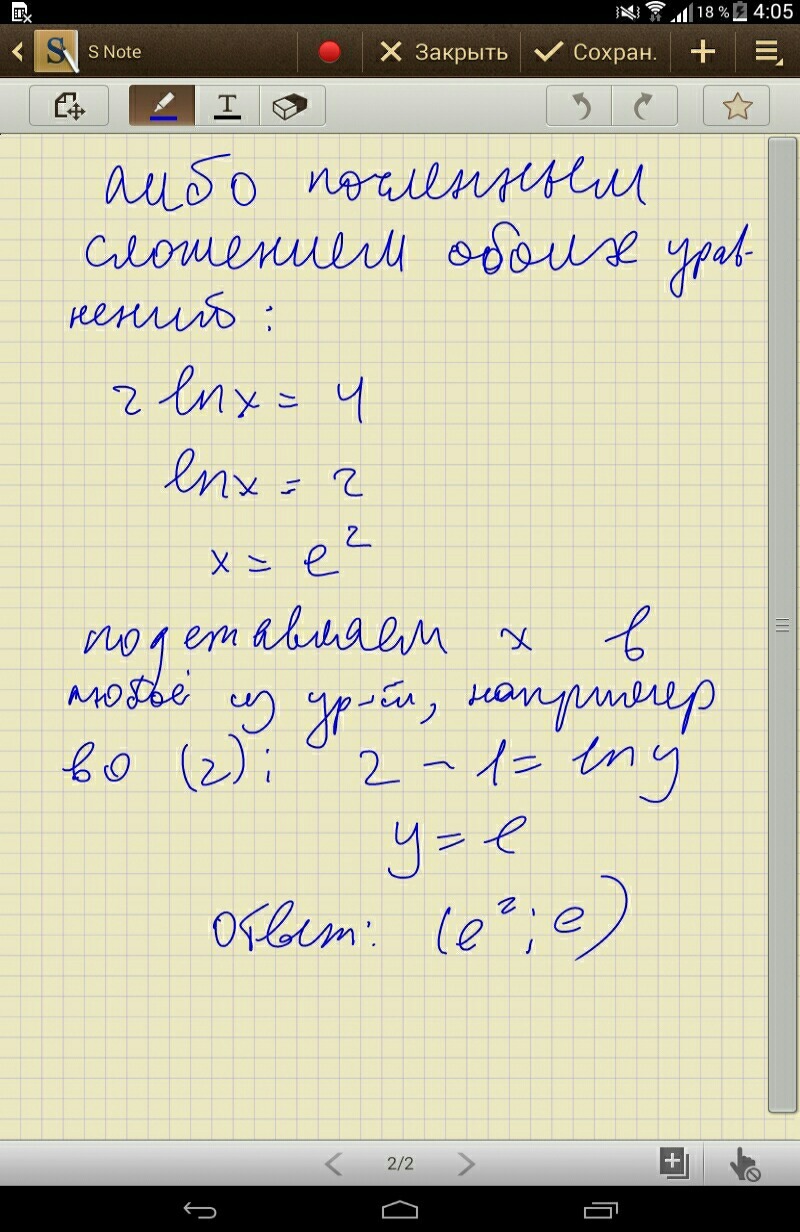 18 % 4:05
S Note Закрыть Сохран.
T
либо почленным
сложением обоих урав-
нений:
2 lnx = 4
lnx = 2
x = e²
подставляем x в
любое из ур-й, например
во (2): 2 - 1 = lny
y = e
ответ: (e²; e)
2/2